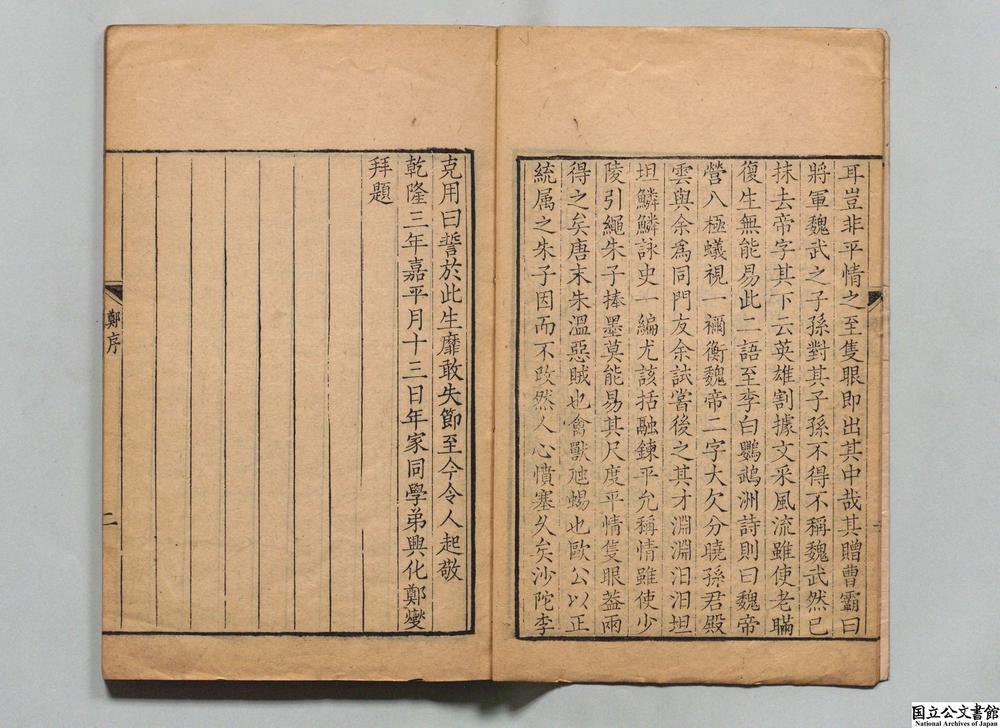 耳豈非平情之至隻眼即出其中哉其贈曹霸曰
將軍魏武之子孫對其子孫不得不稱魏武然已
抹去帝字其下云英雄割據文采風流雖使老瞞
復生無能易此二語至李白鸚鵡洲詩則曰魏帝
營八極蟻視一禰衡魏帝二字大欠分曉孫君殿
雲與余為同門友余試嘗後之其才淵淵汨汨坦
坦鱗鱗詠史一編尤該括融鍊平允稱情雖使少
陵引繩朱子捧墨莫能易其尺度平情隻眼葢兩
得之矣唐末朱溫惡賊也禽獸虺蜴也歐公以正
統属之朱子因而不改然人心憤塞久矣沙陀李
克用曰誓於此生靡敢失節至今令人起敬
乾隆三年嘉平月十三日年家同學弟興化鄭燮
拜題
鄭序
二
国立公文書館
National Archives of Japan